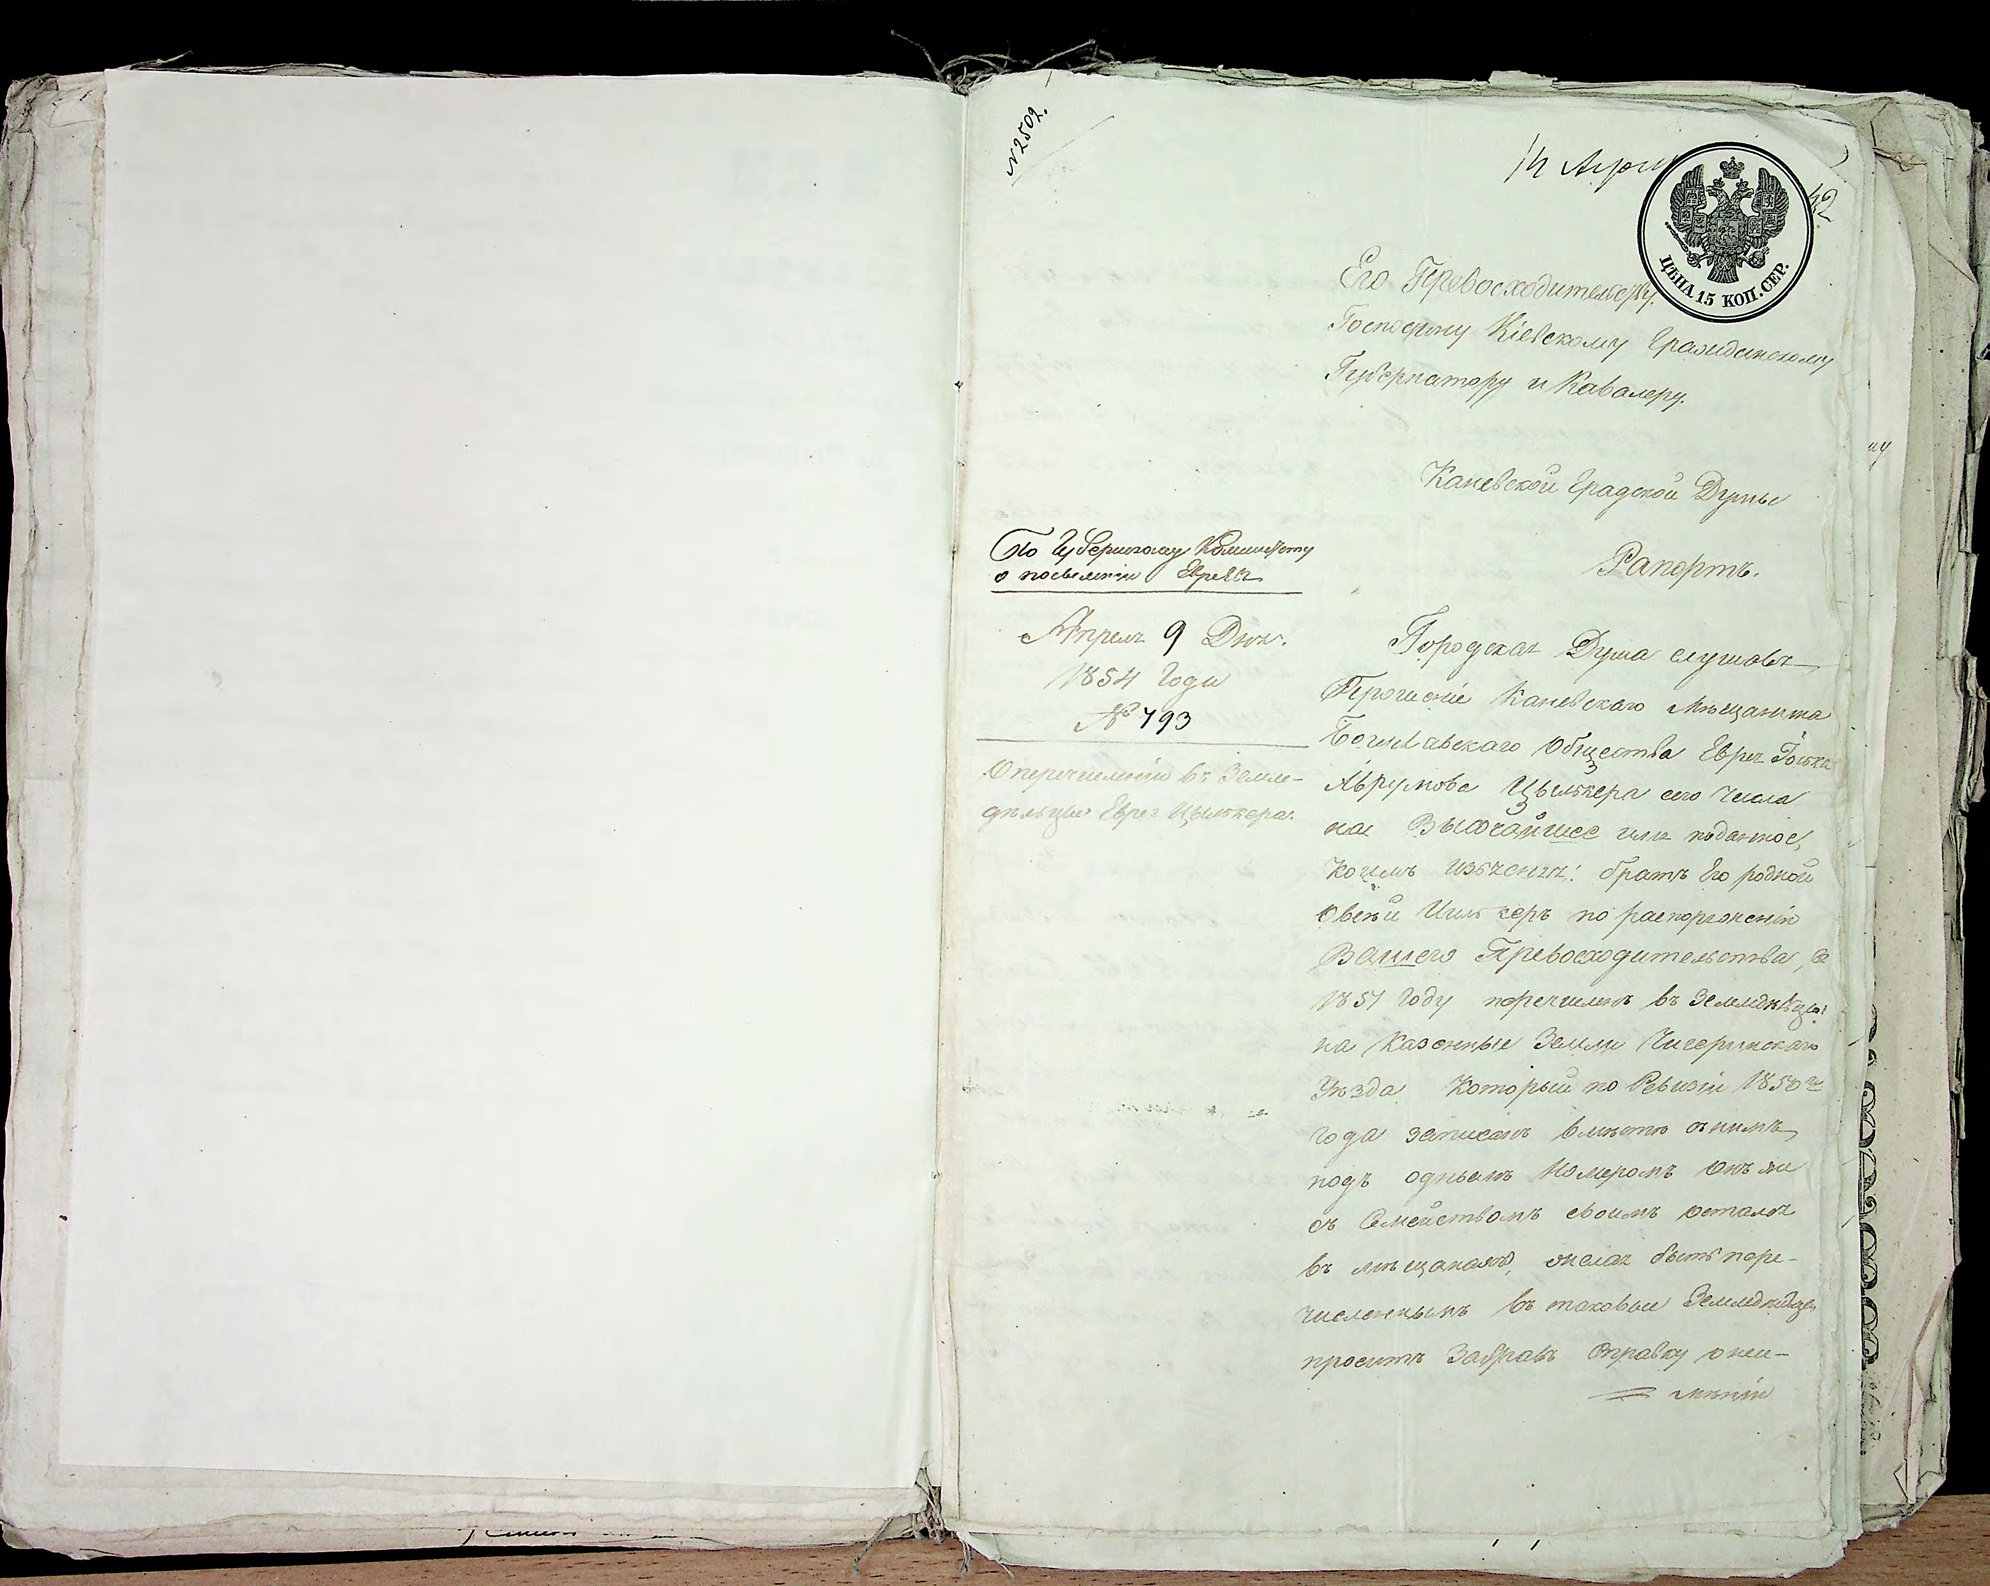 № 2502.
14 Апрѣл
42
ЦѢНА 15 КОП. СЕР.
Его Превосходительству
Господину Кіевскому Гражданскому
Губернатору и Кавалеру.
Каневской Градской Думы
Рапортъ.
По Губернскому Комитету
о поселеніи Евреевъ
Апрель 9 Дня.
1854 Года
№ 793
О перечисленіи въ Земле-
дѣльцы Еврея Цылькера.
Городская Дума слушавъ
Прошеніе Каневскаго Мѣщанина
Богуславскаго Общества Еврея
Аврумова Цылькера сего числа
на Высочайшее имя поданное,
коимъ изъяснилъ: братъ Его родной
Овсѣй Цилькеръ по распоряженію
Вашего Превосходительства, въ
1851 Году перечисленъ въ Земледѣльцы
на Казенные Земли Чигиринскаго
Уѣзда Который по Ревизіи 1850го
года записанъ вмѣсте снимъ
подъ однымъ Номеромъ Онъ же
съ Семействомъ своимъ остался
въ мѣщанахъ, желая быть пере-
численнымъ въ таковые Земледѣльцы
проситъ Забравъ Справку онеи-
мѣніи